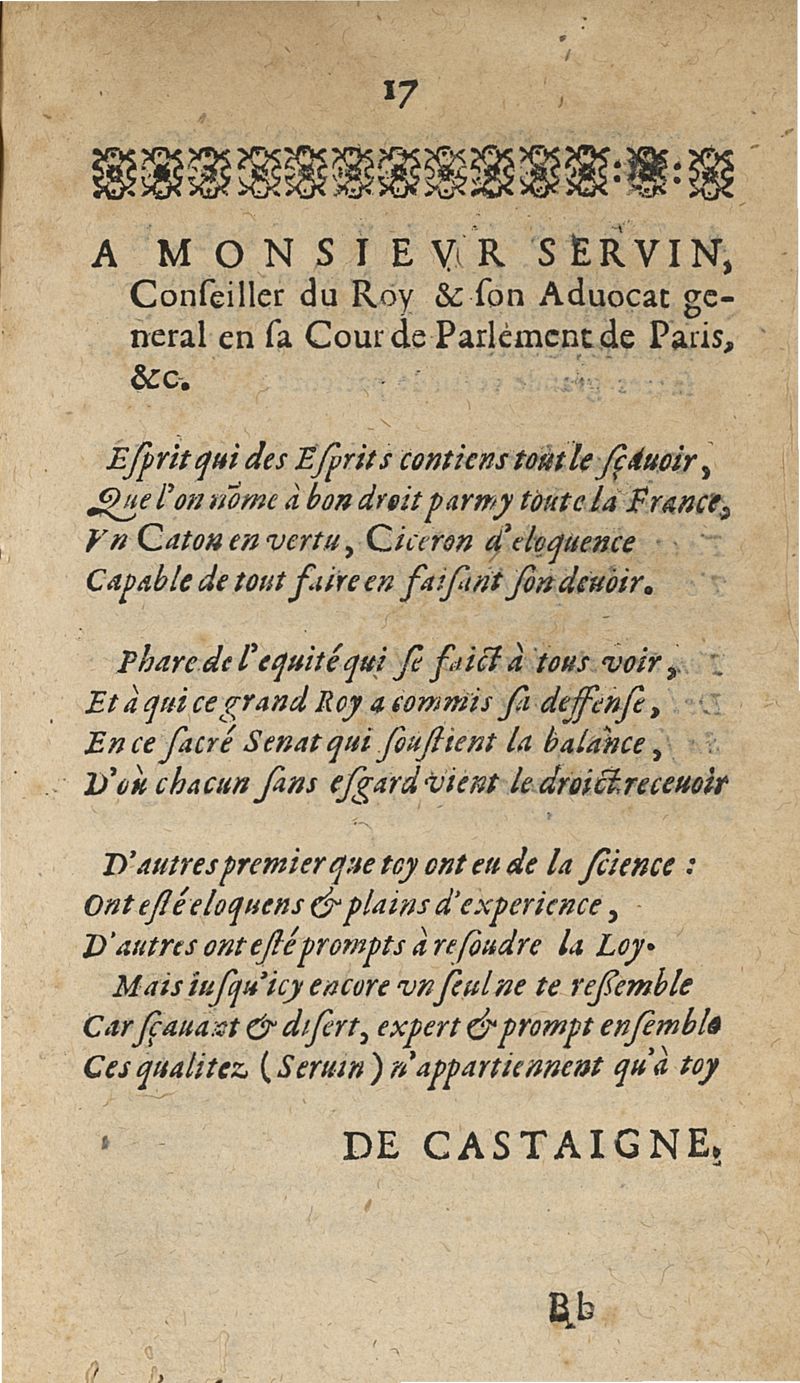 17
A MONSIEVR SERVIN,
Conſeiller du Roy & ſon Aduocat ge-
neral en ſa Cour de Parlement de Paris,
&c.
Eſprit qui des Eſprits contiens tout le ſçauoir,
Que l'on nõme à bon droit parmy toute la France,
Vn Caton en vertu, Ciceron d'eloquence
Capable de tout faire en faiſant ſon deuoir.
Phare de l'equité qui ſe faict à tous voir,
Et à qui ce grand Roy a commis ſa deffenſe,
En ce ſacré Senat qui ſouſtient la balance,
D'où chacun ſans eſgard vient le droict receuoir
D'autres premier que toy ont eu de la ſcience :
Ont eſté eloquens & plains d'experience,
D'autres ont eſté prompts à reſoudre la Loy.
Mais iuſqu'icy encore vn ſeul ne te reſſemble
Car ſçauant & diſert, expert & prompt enſemble
Ces qualitez (Seruin) n'appartiennent qu'à toy
DE CASTAIGNE,
Bb